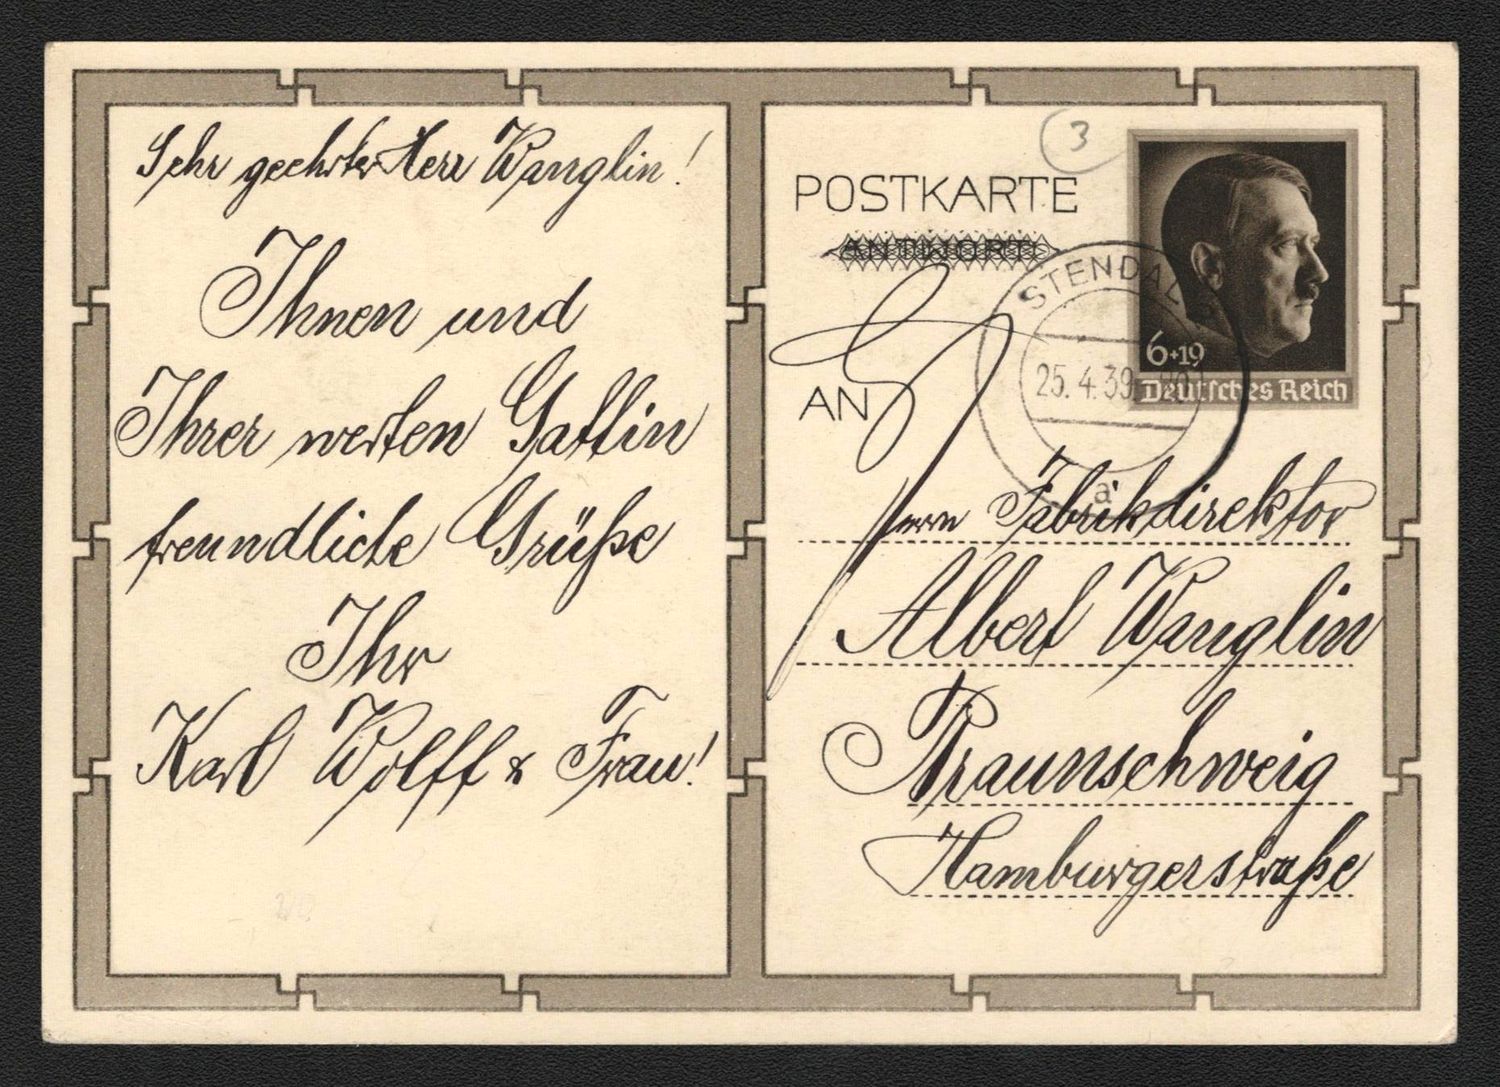 Sehr geehrter Herr Wanglin!
Ihnen und
Ihrer werten Gattin
freundliche Grüße
Ihr
Karl Wolff & Frau!
3
POSTKARTE
ANTWORT
AN
STENDAL
25.4.39
a
6+19
Deutsches Reich
Herrn Fabrikdirektor
Albert Wanglin
Braunschweig
Hamburgerstraße